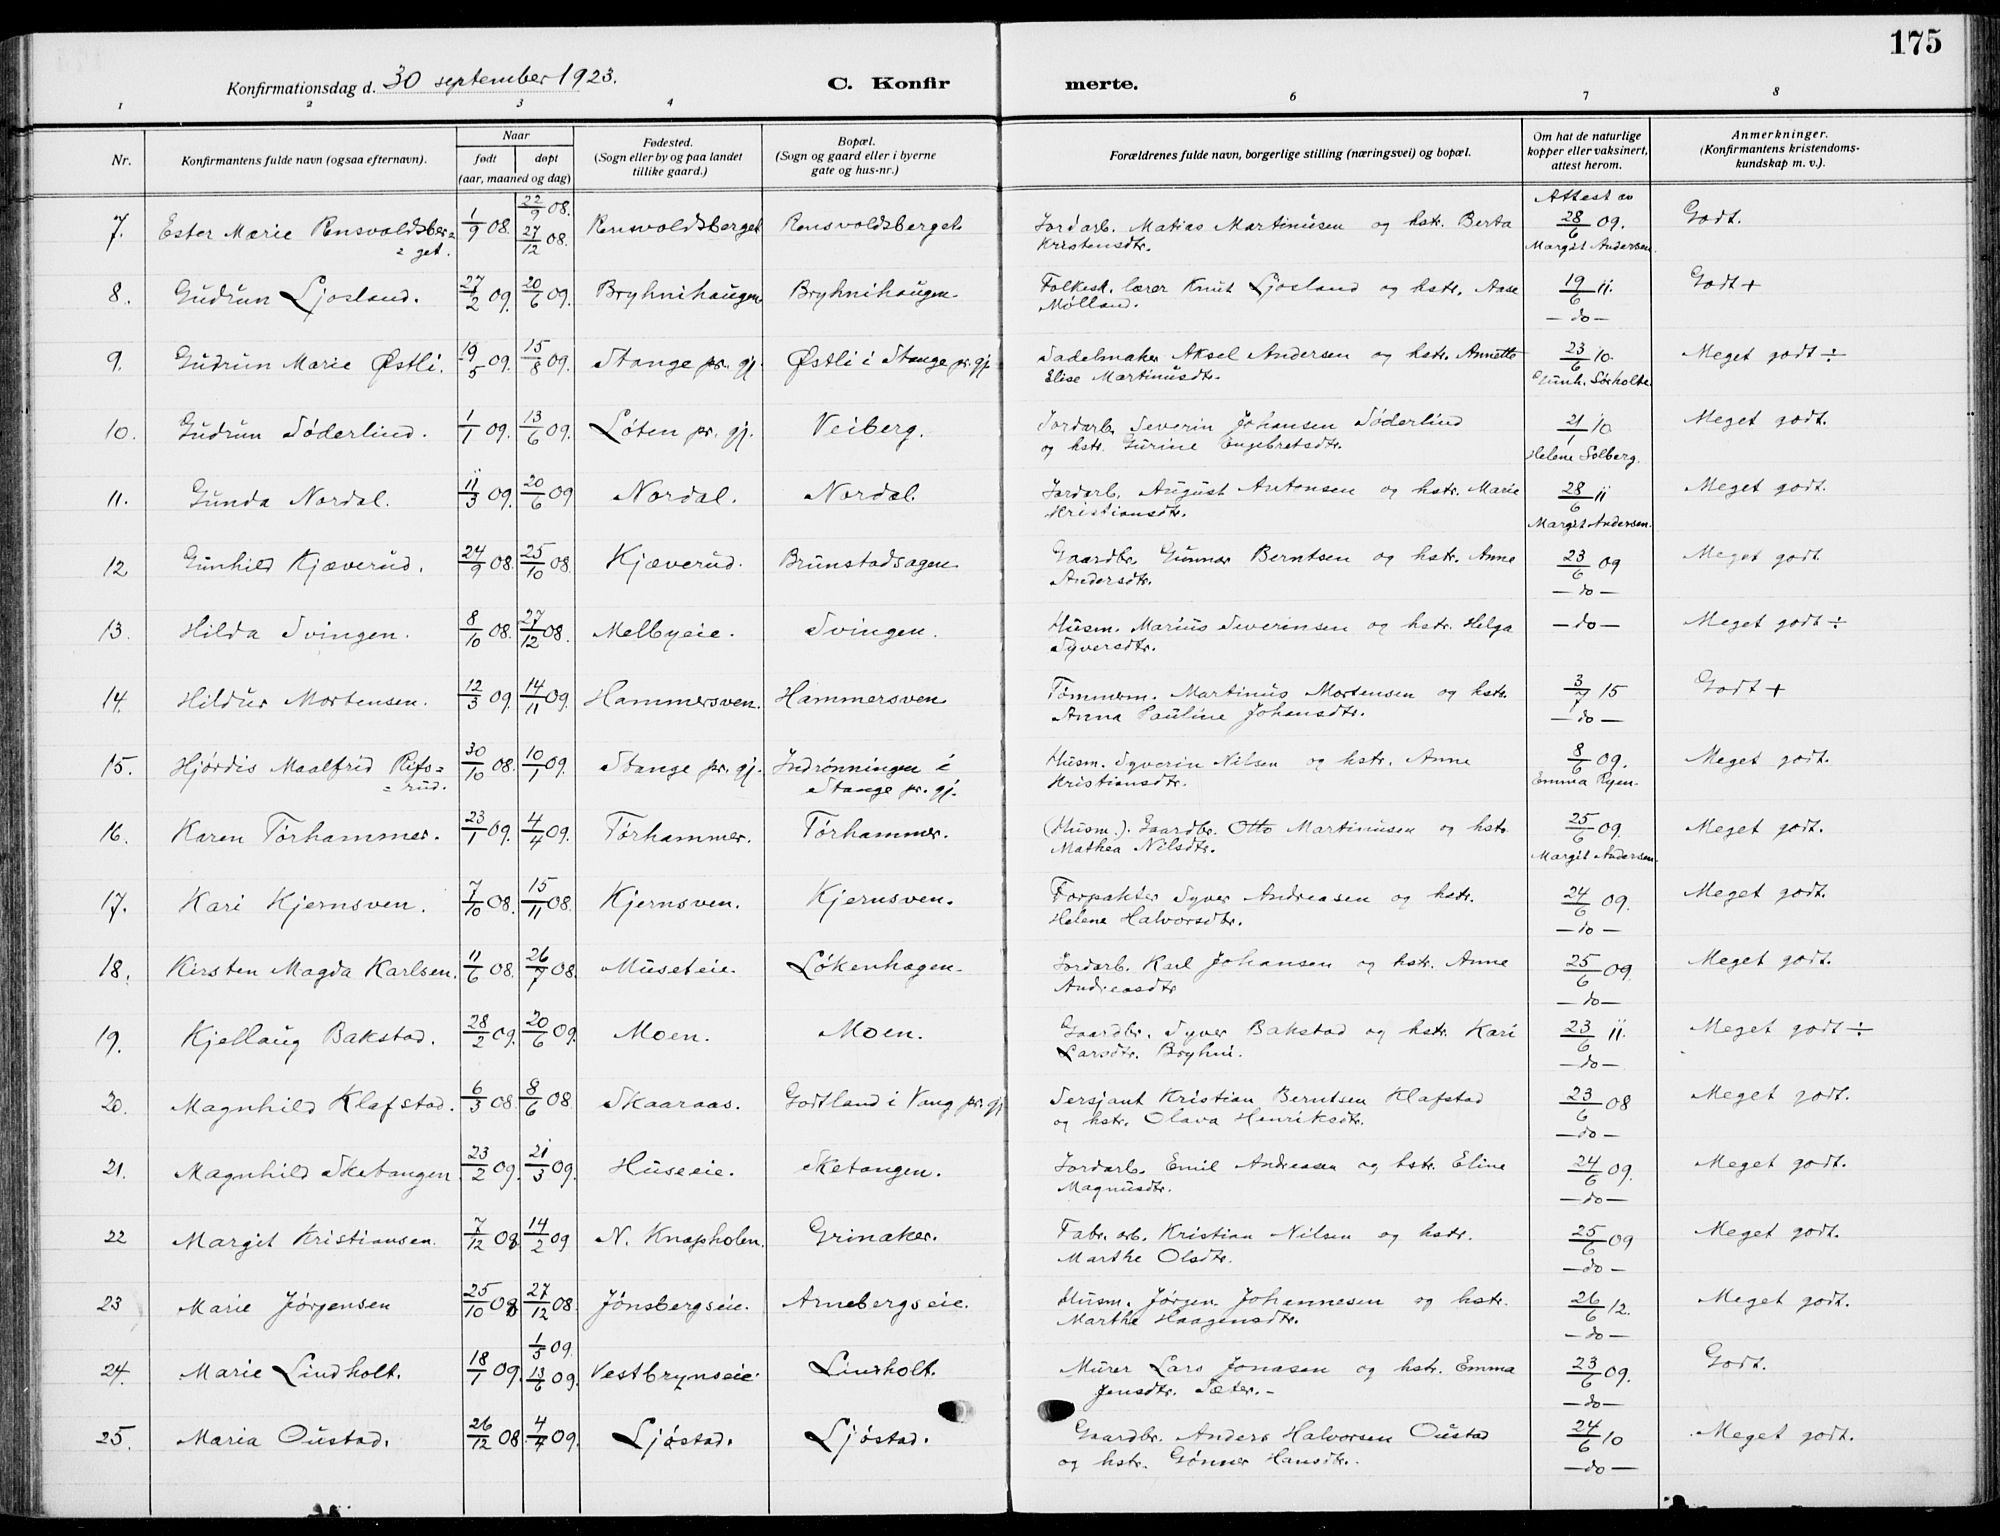 175
Konfirmationsdag d. 30 september 1923. C. Konfirmerte.
1 2 3 4 6 7 8
Nr. Konfirmantens fulde navn (ogsaa efternavn). Naar født døpt (aar, maaned og dag) Fødested. (Sogn eller by og paa landet tillike gaard.) Bopæl. (Sogn og gaard eller i byerne gate og hus-nr.) Forældrenes fulde navn, borgerlige stilling (næringsvei) og bopæl. Om hat de naturlige kopper eller vaksinert, attest herom. Anmerkninger. (Konfirmantens kristendomskundskap m. v.).
7. Ester Marie Rensvoldsber= 1/9 08. 22/9 08. 27/12 08. Rensvoldsberget Rensvoldsberget Jordarb. Matias Martinusen og hstr. Berta Attest av 28/6 09. Godt.
= get. Kristensdtr. Margit Andersen.
8. Gudrun Ljosland. 27/2 09. 20/6 09. Bryhnihaugen Bryhnihaugen. Folkesk. lærer Knut Ljosland og hstr. Aase 19/6 11. Godt +
Mølland. — do —
9. Gudrun Marie Østli. 19/5 09. 15/8 09. Stange pr. gj. Østli i Stange pr. gj. Sadelmaker Aksel Andersen og hstr. Annette 23/6 10. Meget godt ÷
Elise Martinusdtr. Gunh. Sørholte
10. Gudrun Søderlind. 1/1 09. 13/6 09. Løten pr. gj. Veiberg. Jordarb. Severin Johansen Søderlind 21/1 10 Meget godt.
og hstr. Gurine Engebretsdtr. Helene Solberg.
11. Gunda Nordal. 11/3 09. 20/6 09 Nordal. Nordal. Jordarb. August Antonsen og hstr. Marie 28/6 11 Meget godt.
Kristiansdtr. Margit Andersen.
12 Gunhild Kjæverud. 24/9 08. 25/10 08. Kjæverud. Brunstadsagen. Gaardbr. Gunnar Berntsen og hstr. Anne 23/6 09 Meget godt
Andersdtr. — do —
13. Hilda Svingen. 8/10 08. 27/12 08. Melbyeie. Svingen. Husm. Marius Severinsen og hstr. Helga — do — Meget godt ÷
Syversdtr.
14. Hildur Mortensen. 12/3 09. 14/11 09. Hammersven. Hammersven. Tømmerm. Martinus Mortensen og hstr. 3/7 15 Godt +
Anna Pauline Johansdtr. — do —
15. Hjørdis Maalfrid Rifs= 30/10 08. 10/1 09. Stange pr. gj. Indrønningen i Husm. Syverin Nilsen og hstr. Anne 8/6 09. Meget godt.
= rud. Stange pr. gj. Kristiansdtr. Emma Ryen.
16. Karen Tørhammer. 23/1 09. 4/4 09. Tørhammer. Tørhammer. (Husm.). Gaardbr. Otto Martinusen og hstr. 25/6 09. Meget godt.
Mathea Nilsdtr. Margit Andersen.
17. Kari Kjernsven. 7/10 08. 15/11 08. Kjernsven. Kjernsven. Forpakter Syver Andreasen og hstr. 24/6 09. Meget godt.
Helene Halvorsdtr. — do —
18. Kirsten Magda Karlsen. 11/6 08. 26/7 08. Museteie. Løkenhagen. Jordarb. Karl Johansen og hstr. Anne 25/6 09. Meget godt.
Andreasdtr — do —
19. Kjellaug Bakstad. 28/2 09. 20/6 09. Moen. Moen. Gaardbr. Syver Bakstad og hstr. Kari 23/6 11. Meget godt ÷
Larsdtr. Bryhni. — do —
20. Magnhild Klafstad. 6/3 08. 8/6 08 Skaaraas. Godtland i Vang pr. gj Sersjant Kristian Berntsen Klafstad 23/6 08 Meget godt.
og hstr. Olava Henriksdtr. — do —
21. Magnhild Sketangen 23/2 09. 21/3 09. Huseeie. Sketangen. Jordarb. Emil Andreasen og hstr. Eline 24/6 09. Meget godt.
Magnusdtr. — do —
22 Margit Kristiansen. 7/12 08 14/2 09 N. Knapholen. Grinaker. Fabr. arb. Kristian Nilsen og hstr. 25/6 09 Meget godt.
Marthe Olsdtr. — do —
23 Marie Jørgensen 25/10 08 27/12 08. Jønsbergseie. Arnebergseie. Husm. Jørgen Johannesen og hstr. 26/6 12. Meget godt.
Marthe Haagensdtr. — do —
24. Marie Lindholt. 18/1 09. 1/5 09. 13/6 09. Vestbrynseie. Lindholt. Murer Lars Jonasen og hstr. Emma 23/6 09. Godt.
Jensdtr. Sæter. — do —
25. Maria Oustad. 26/12 08. 4/4 09. Ljøstad. Ljøstad. Gaardbr. Anders Halvorsen Oustad 24/6 10 Meget godt.
og hstr. Gønner Hansdtr. — do —